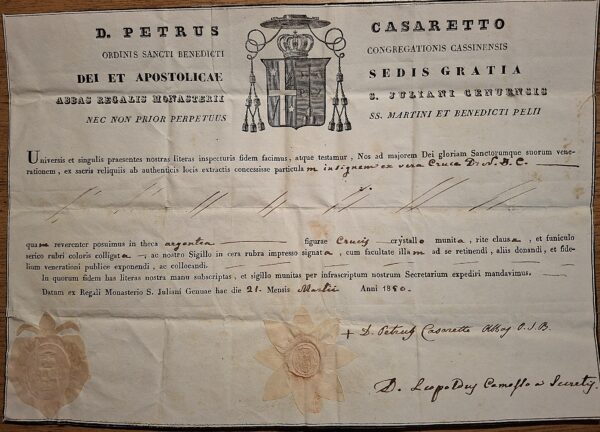 D. PETRUS CASARETTO
ORDINIS SANCTI BENEDICTI CONGREGATIONIS CASSINENSIS
DEI ET APOSTOLICAE SEDIS GRATIA
ABBAS REGALIS MONASTERII S. JULIANI GENUENSIS
NEC NON PRIOR PERPETUUS SS. MARTINI ET BENEDICTI PELII
Universis et singulis praesentes nostras literas inspecturis fidem facimus, atque testamur, Nos ad majorem Dei gloriam Sanctorumque suorum vene-
rationem, ex sacris reliquiis ab authenticis locis extractis concessisse particulam insignem ex vera Cruce D. N. J. C.
quam reverenter posuimus in theca argentea figurae Crucis crystallo munita, rite clausa, et funiculo
serico rubri coloris colligata, ac nostro Sigillo in cera rubra impresso signata, cum facultate illam ad se retinendi, aliis donandi, et fide-
lium venerationi publice exponendi, ac collocandi.
In quorum fidem has literas nostra manu subscriptas, et sigillo munitas per infrascriptum nostrum Secretarium expediri mandavimus.
Datum ex Regali Monasterio S. Juliani Genuae hac die 21. Mensis Martii Anni 1850.
+ D. Petrus Casaretto Abbas O.S.B.
D. Leopoldus